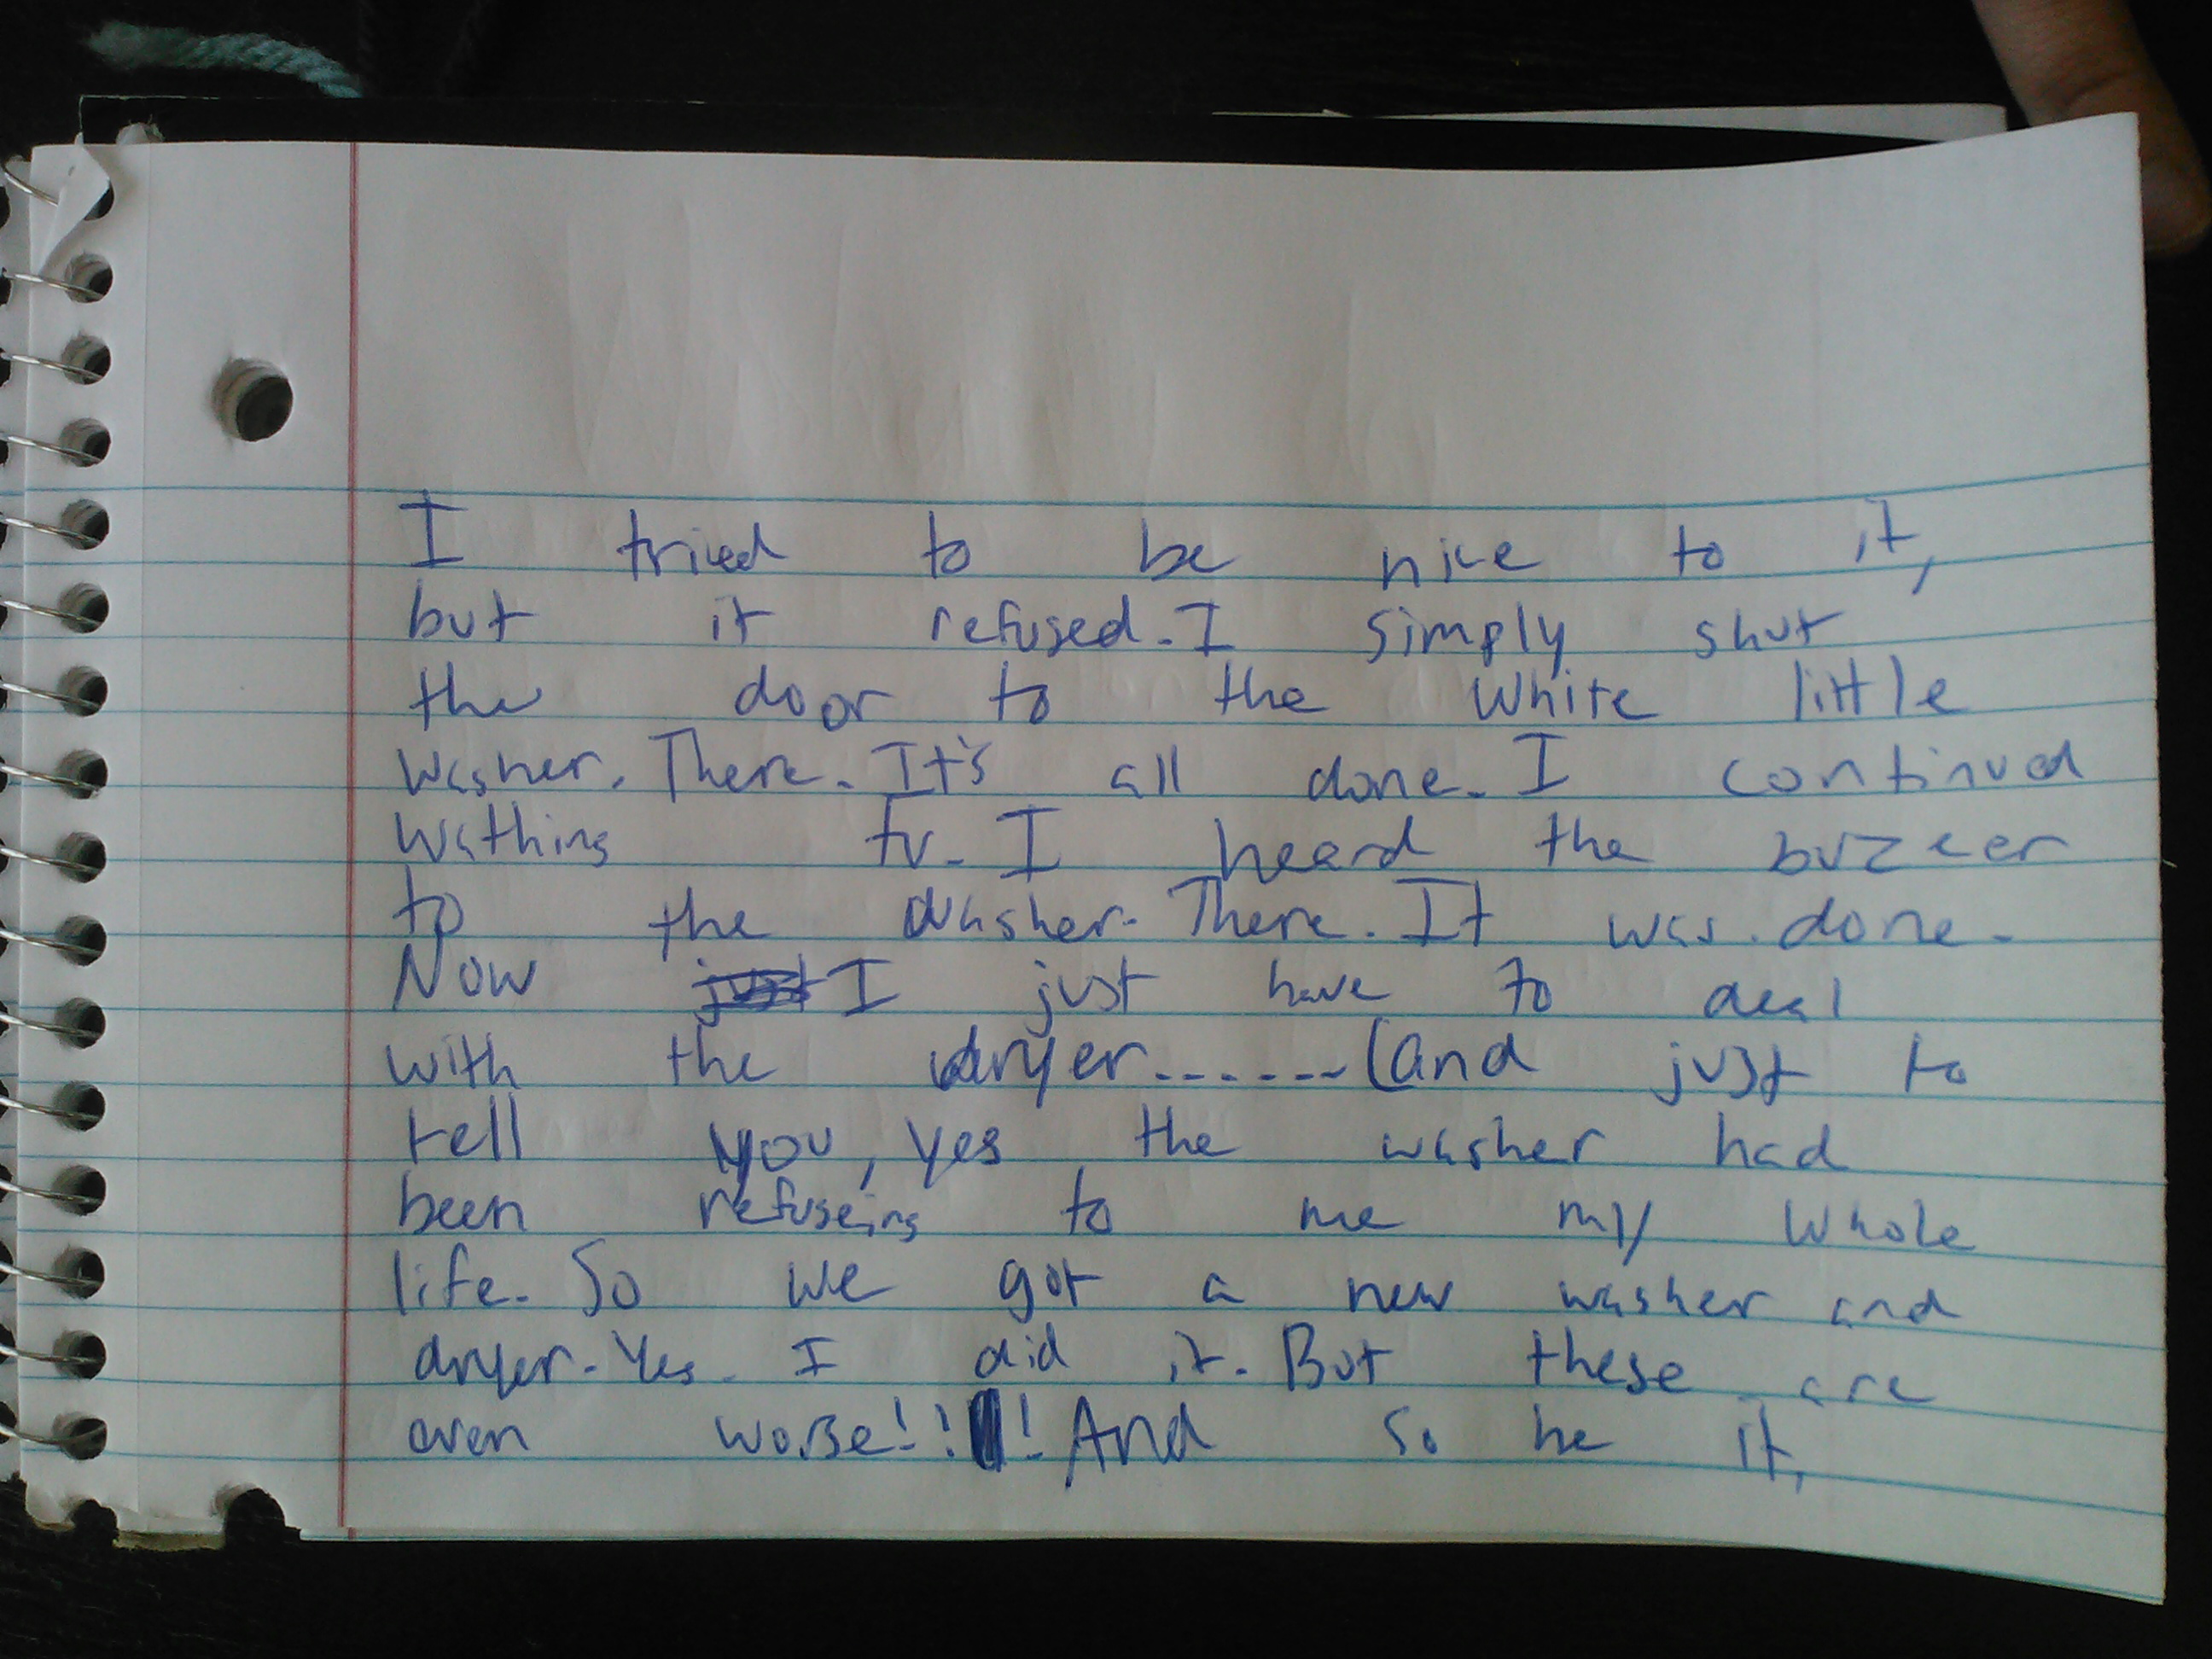 I tried to be nice to it,
but it refused. I simply shut
the door to the white little
washer. There. It's all done. I continued
wathing Tv. I heard the buzeer
to the washer. There. It was done.
Now just I just have to deal
with the dryer......(and just to
tell you, yes the washer had
been refuseing to me my whole
life. So we got a new washer and
dryer. Yes. I did it. But these are
even worse!!! And so be it,